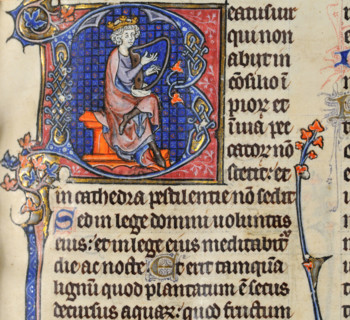 Beatus uir
qui non
abiit in
cōsilio ī
pior et
ī uia pec
cator nō
stetit: et
in cathedra pestilentie nō sedit
Sed in lege domini uoluntas
eius: et in lege eius meditabit᷑
die ac nocte Et erit tamquā
lignū quod plantatum ē secus
decursus aquaꝝ: quod fructum